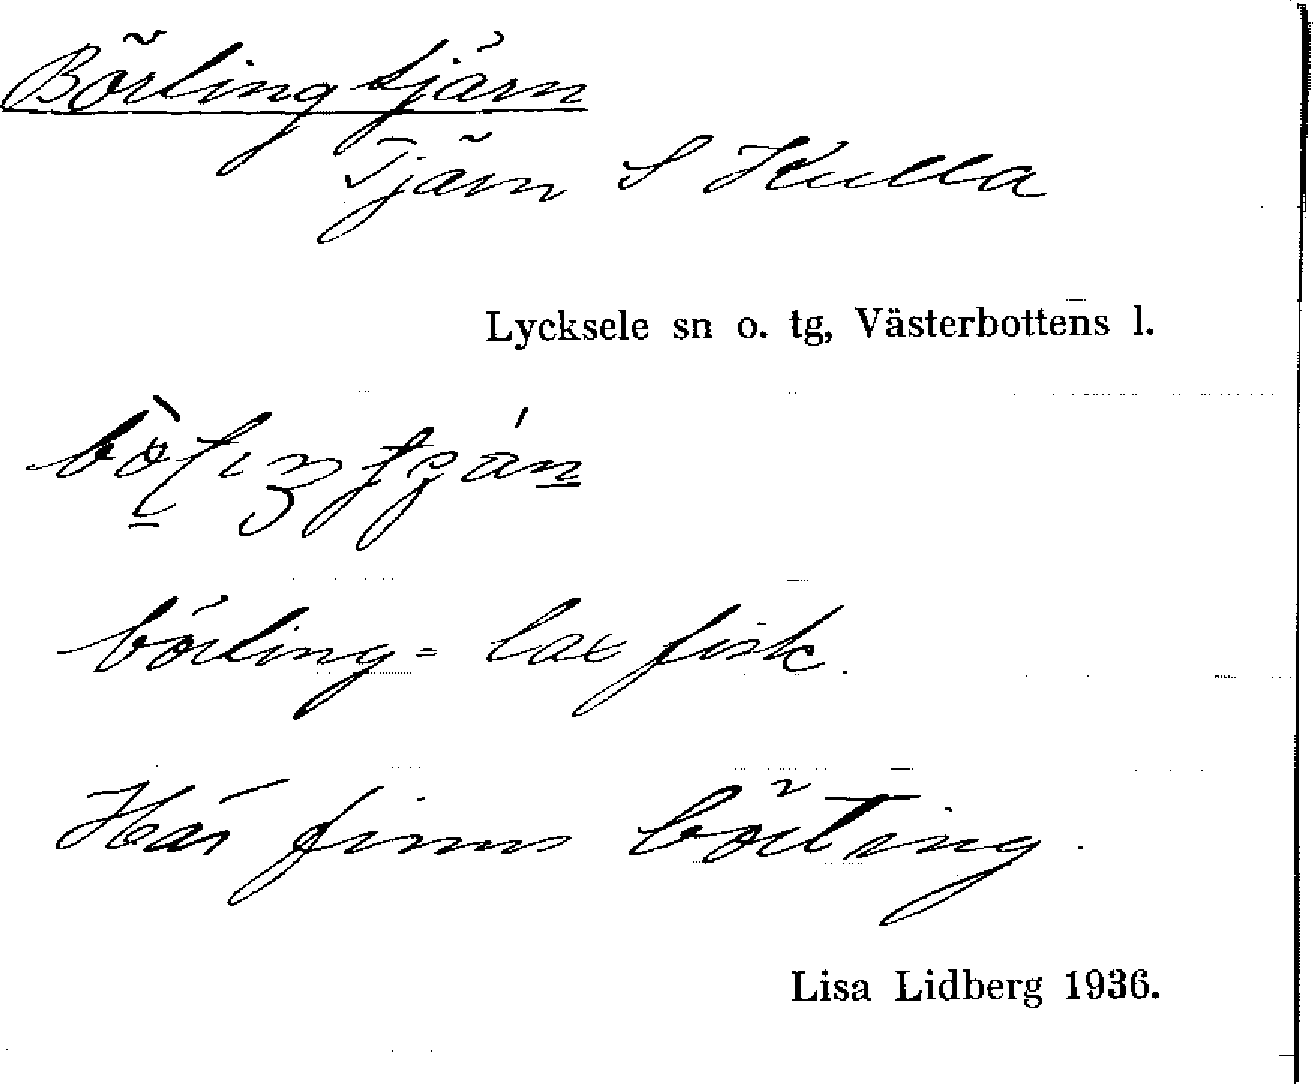 Börlingtjärn
Tjärn S Kulla
Lycksele sn o. tg, Västerbottens l.
börling = laxfisk.
Här finns börting.
Lisa Lidberg 1936.